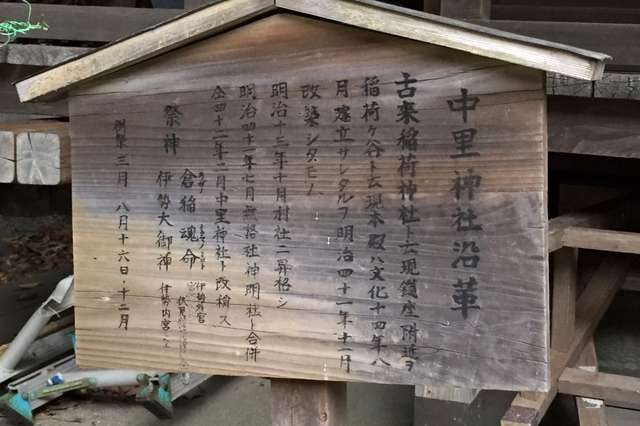 中里神社沿革
古来稲荷神社ト云現鎮座附近ヲ
稲荷ケ谷ト云現本殿ハ文化十四年八
月建立サレタルヲ明治四十一年十一月
改築シタモノ
明治十三年十月村社ニ昇格シ
明治四十一年七月無格社神明社ト合併
仝四十二年二月中里神社ト改稱ス
祭神
倉稲魂命
伊勢外宮
伊勢大御神 伊勢内宮
例祭三月 八月十六日・十二月